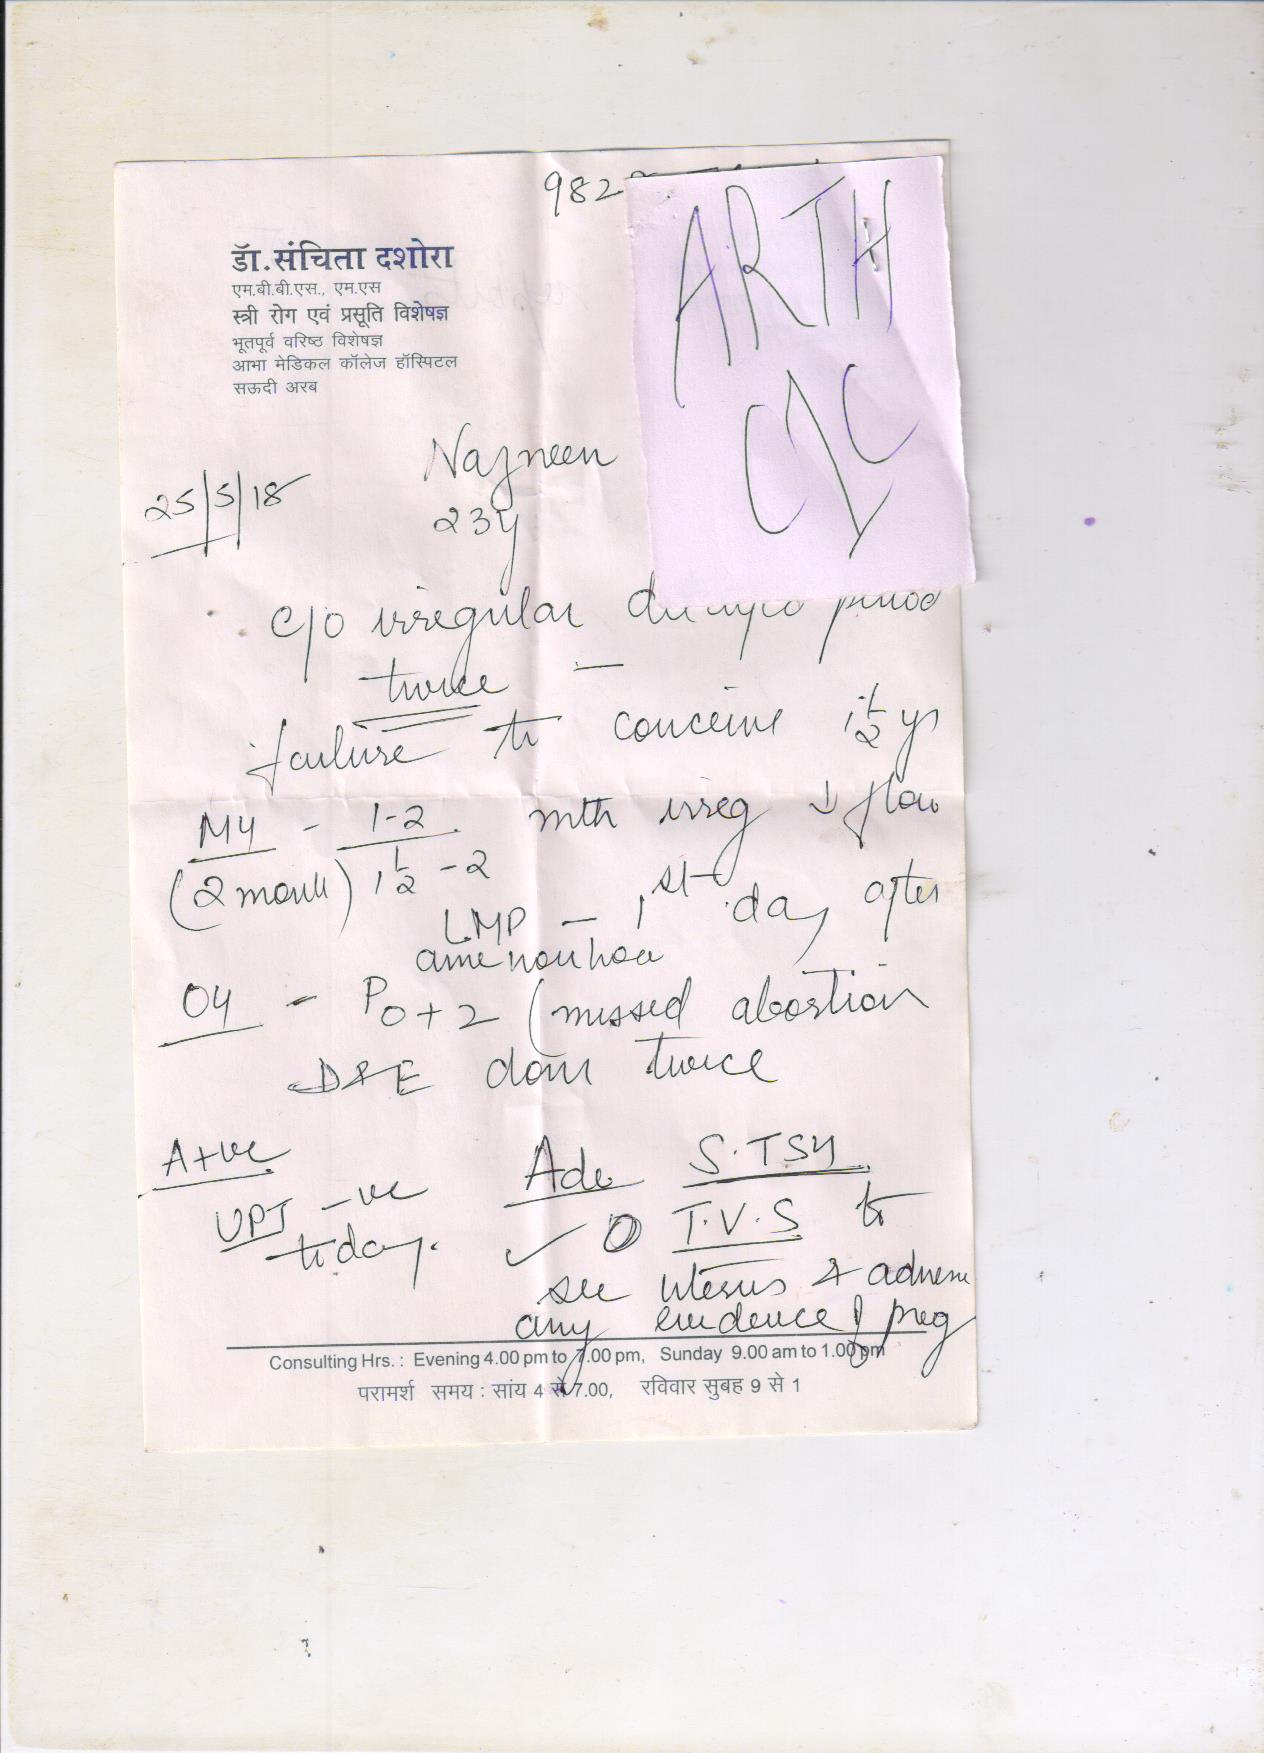 982
ARTH
C/C
डॉ.संचिता दशोरा
एम.बी.बी.एस., एम.एस
स्त्री रोग एवं प्रसूति विशेषज्ञ
भूतपूर्व वरिष्ठ विशेषज्ञ
आभा मेडिकल कॉलेज हॉस्पिटल
सऊदी अरब
Najneen
25/5/18
23y
c/o irregular period
twice
failure to conceive 1 1/2 ys
MH - 1-2 mth irreg ↓ flow
(2 month) 1 1/2 - 2
LMP - 1st day after
amenorrhoea
OH - P0+2 (missed abortion
D&E done twice
A+ve
Adv S.TSH
UPT -ve
today.
✓ T.V.S to
see uterus & adnexa
any evidence of preg
Consulting Hrs. : Evening 4.00 pm to 7.00 pm, Sunday 9.00 am to 1.00 pm
परामर्श समय : सांय 4 से 7.00, रविवार सुबह 9 से 1